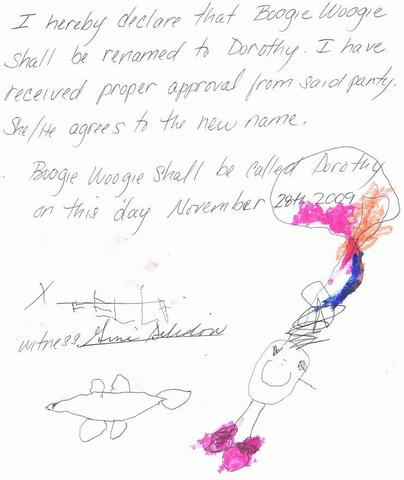 I hereby declare that Boogie Woogie
shall be renamed to Dorothy. I have
received proper approval from said party.
She/He agrees to the new name.
Boogie Woogie shall be called Dorothy
on this day November 28th 2009
X
witness